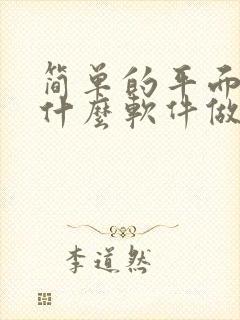 简单的平而
什麼軟件做
李道然